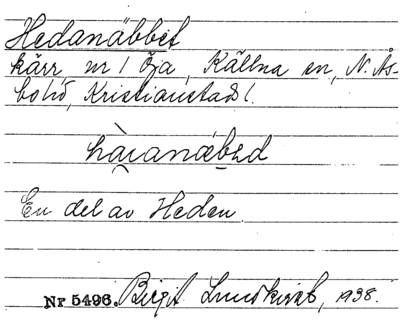 Hedanäbbet
kärr, nr 1 Öja, Källna sn, N. Ås-
bo hd, Kristianstads l.
En del av Heden.
Nr 5496. Birgit Lundkvist, 1938.